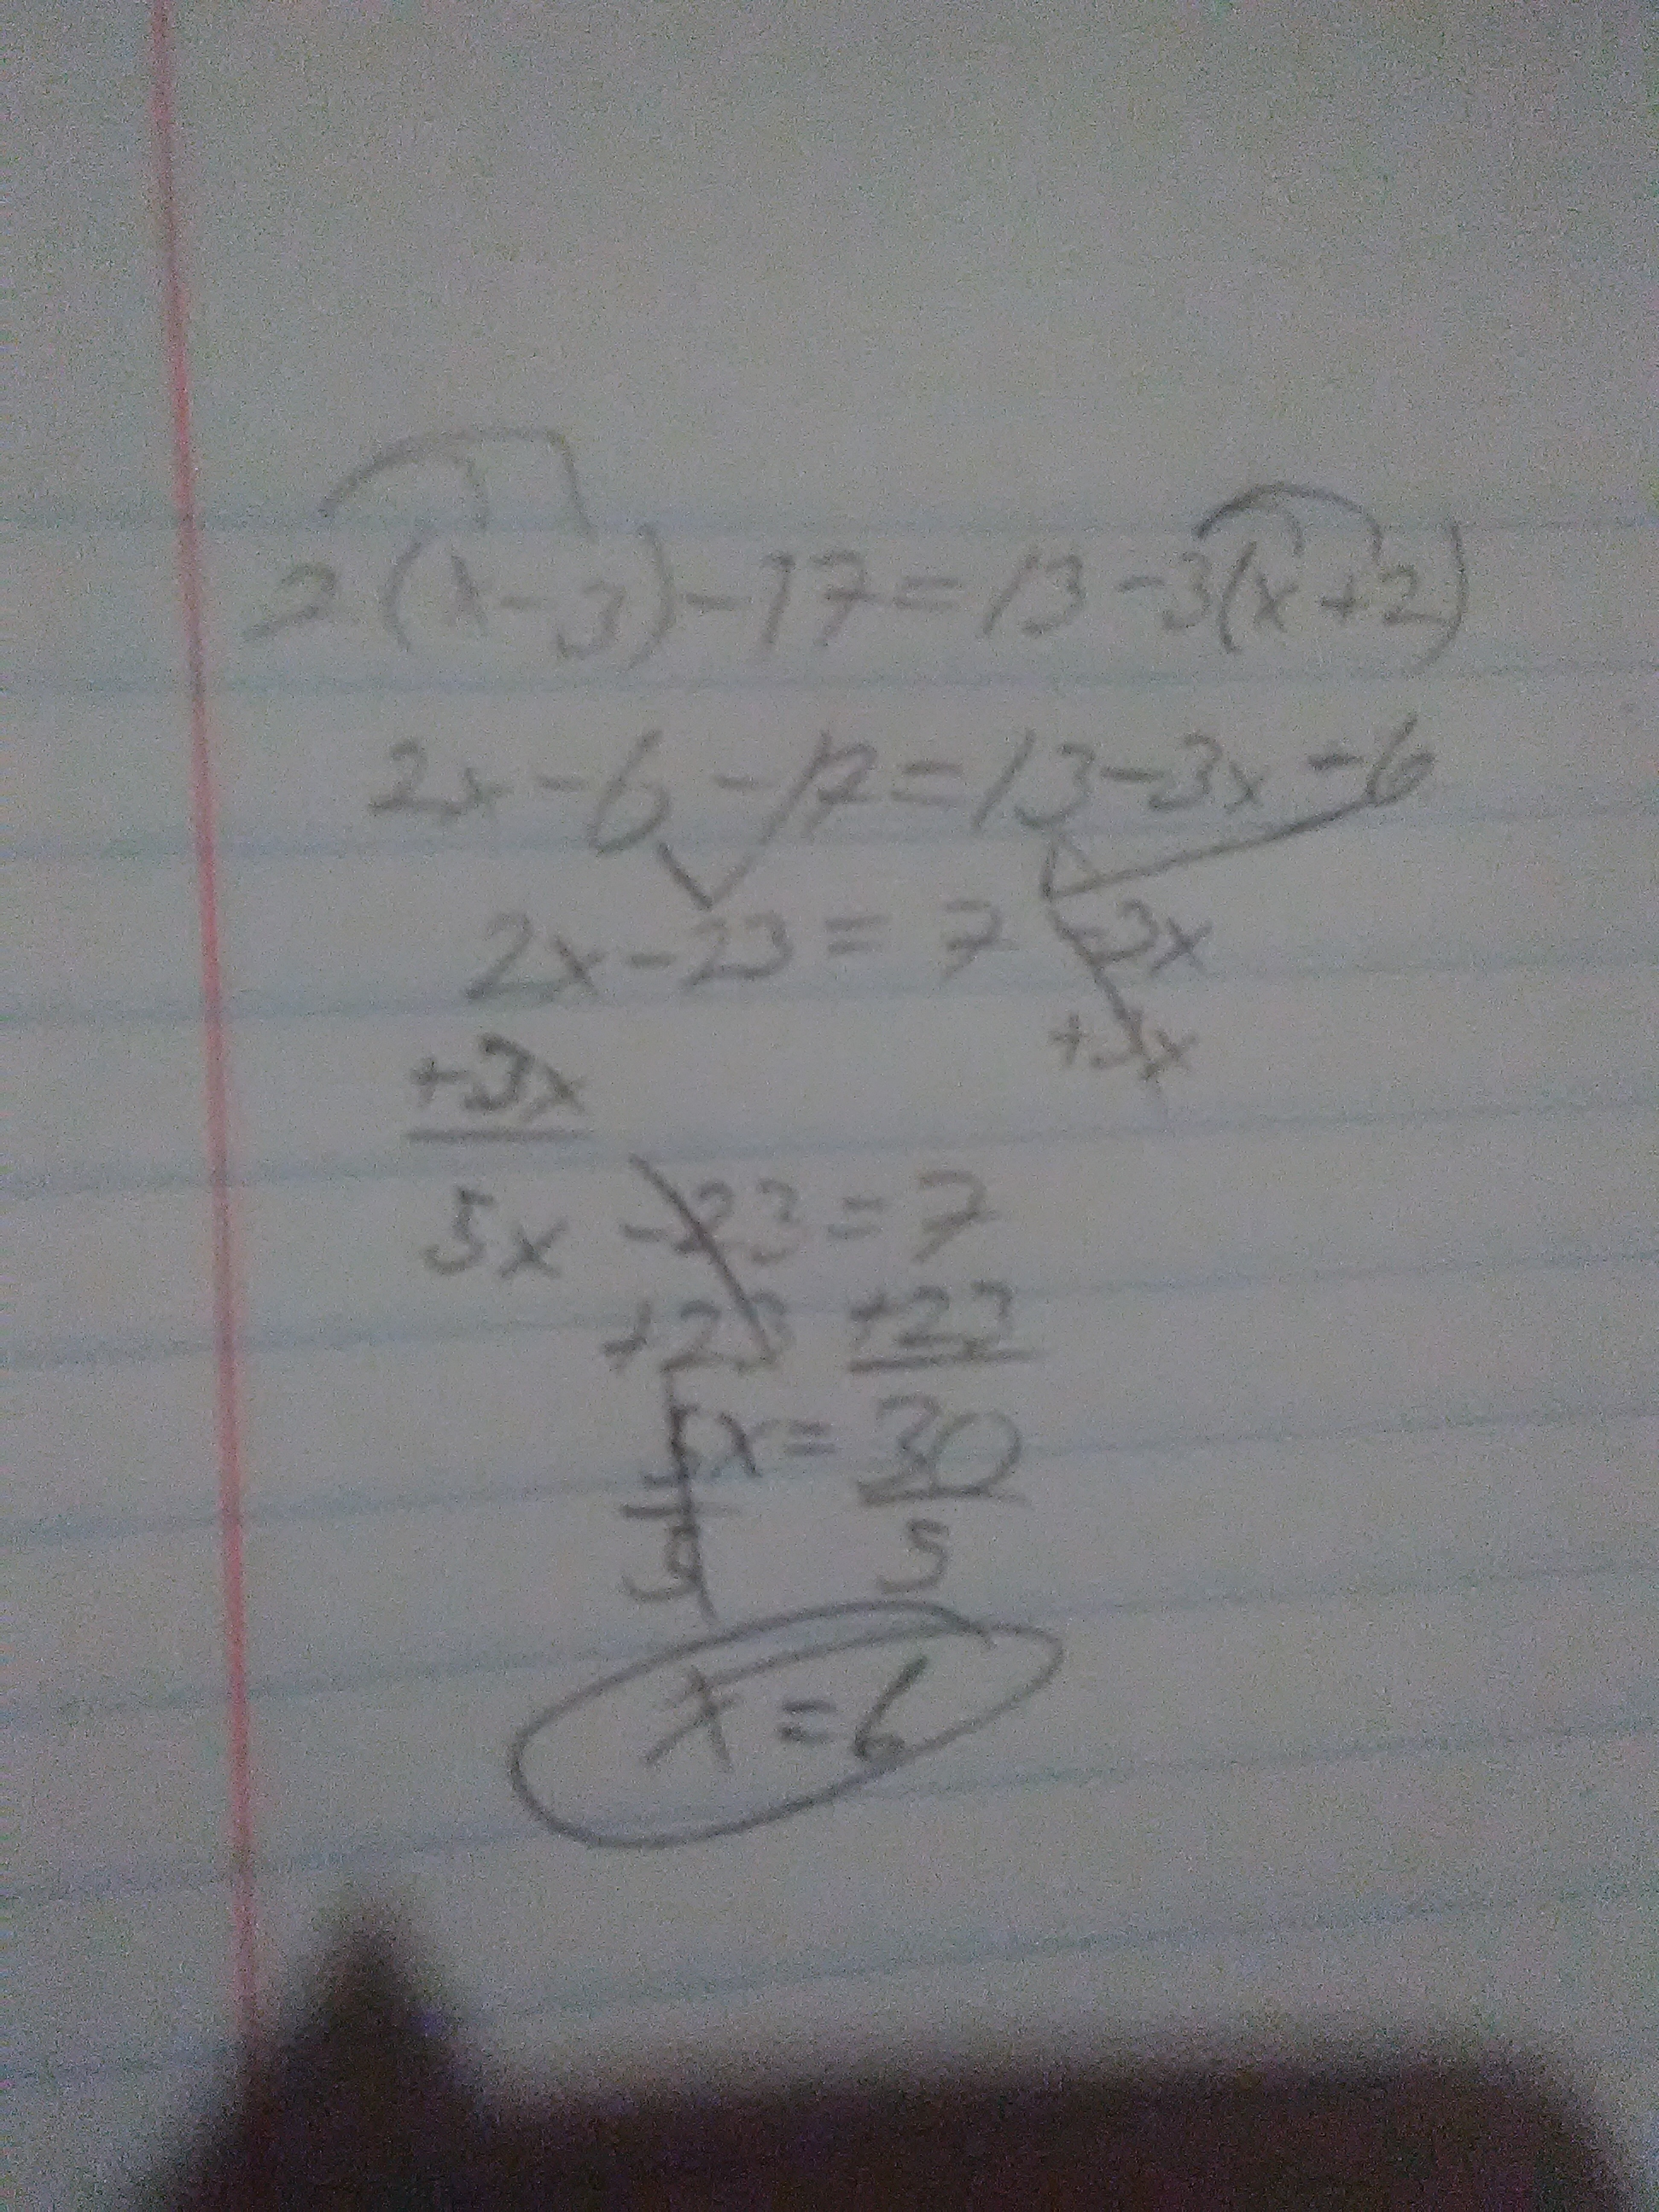 2(x-3)-17=13-3(x+2)
2x-6-17=13-3x-6
2x-23=7-3x
+3x +3x
5x -23=7
+23 +23
5x=30
5 5
x=6